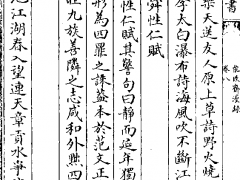 樂天送友人原上草詩野火燒
李太白瀑布詩海風吹不斷江
舜性仁賦
性仁賦其警句曰靜而延年獨
形為四罪之誅蓋本於范文正
壯九族善隣之志咸和外黙四
江湖春入望連天章貢水爭